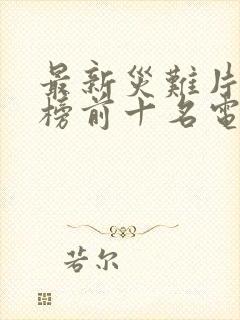 最新災難片
榜前十名電
若尔